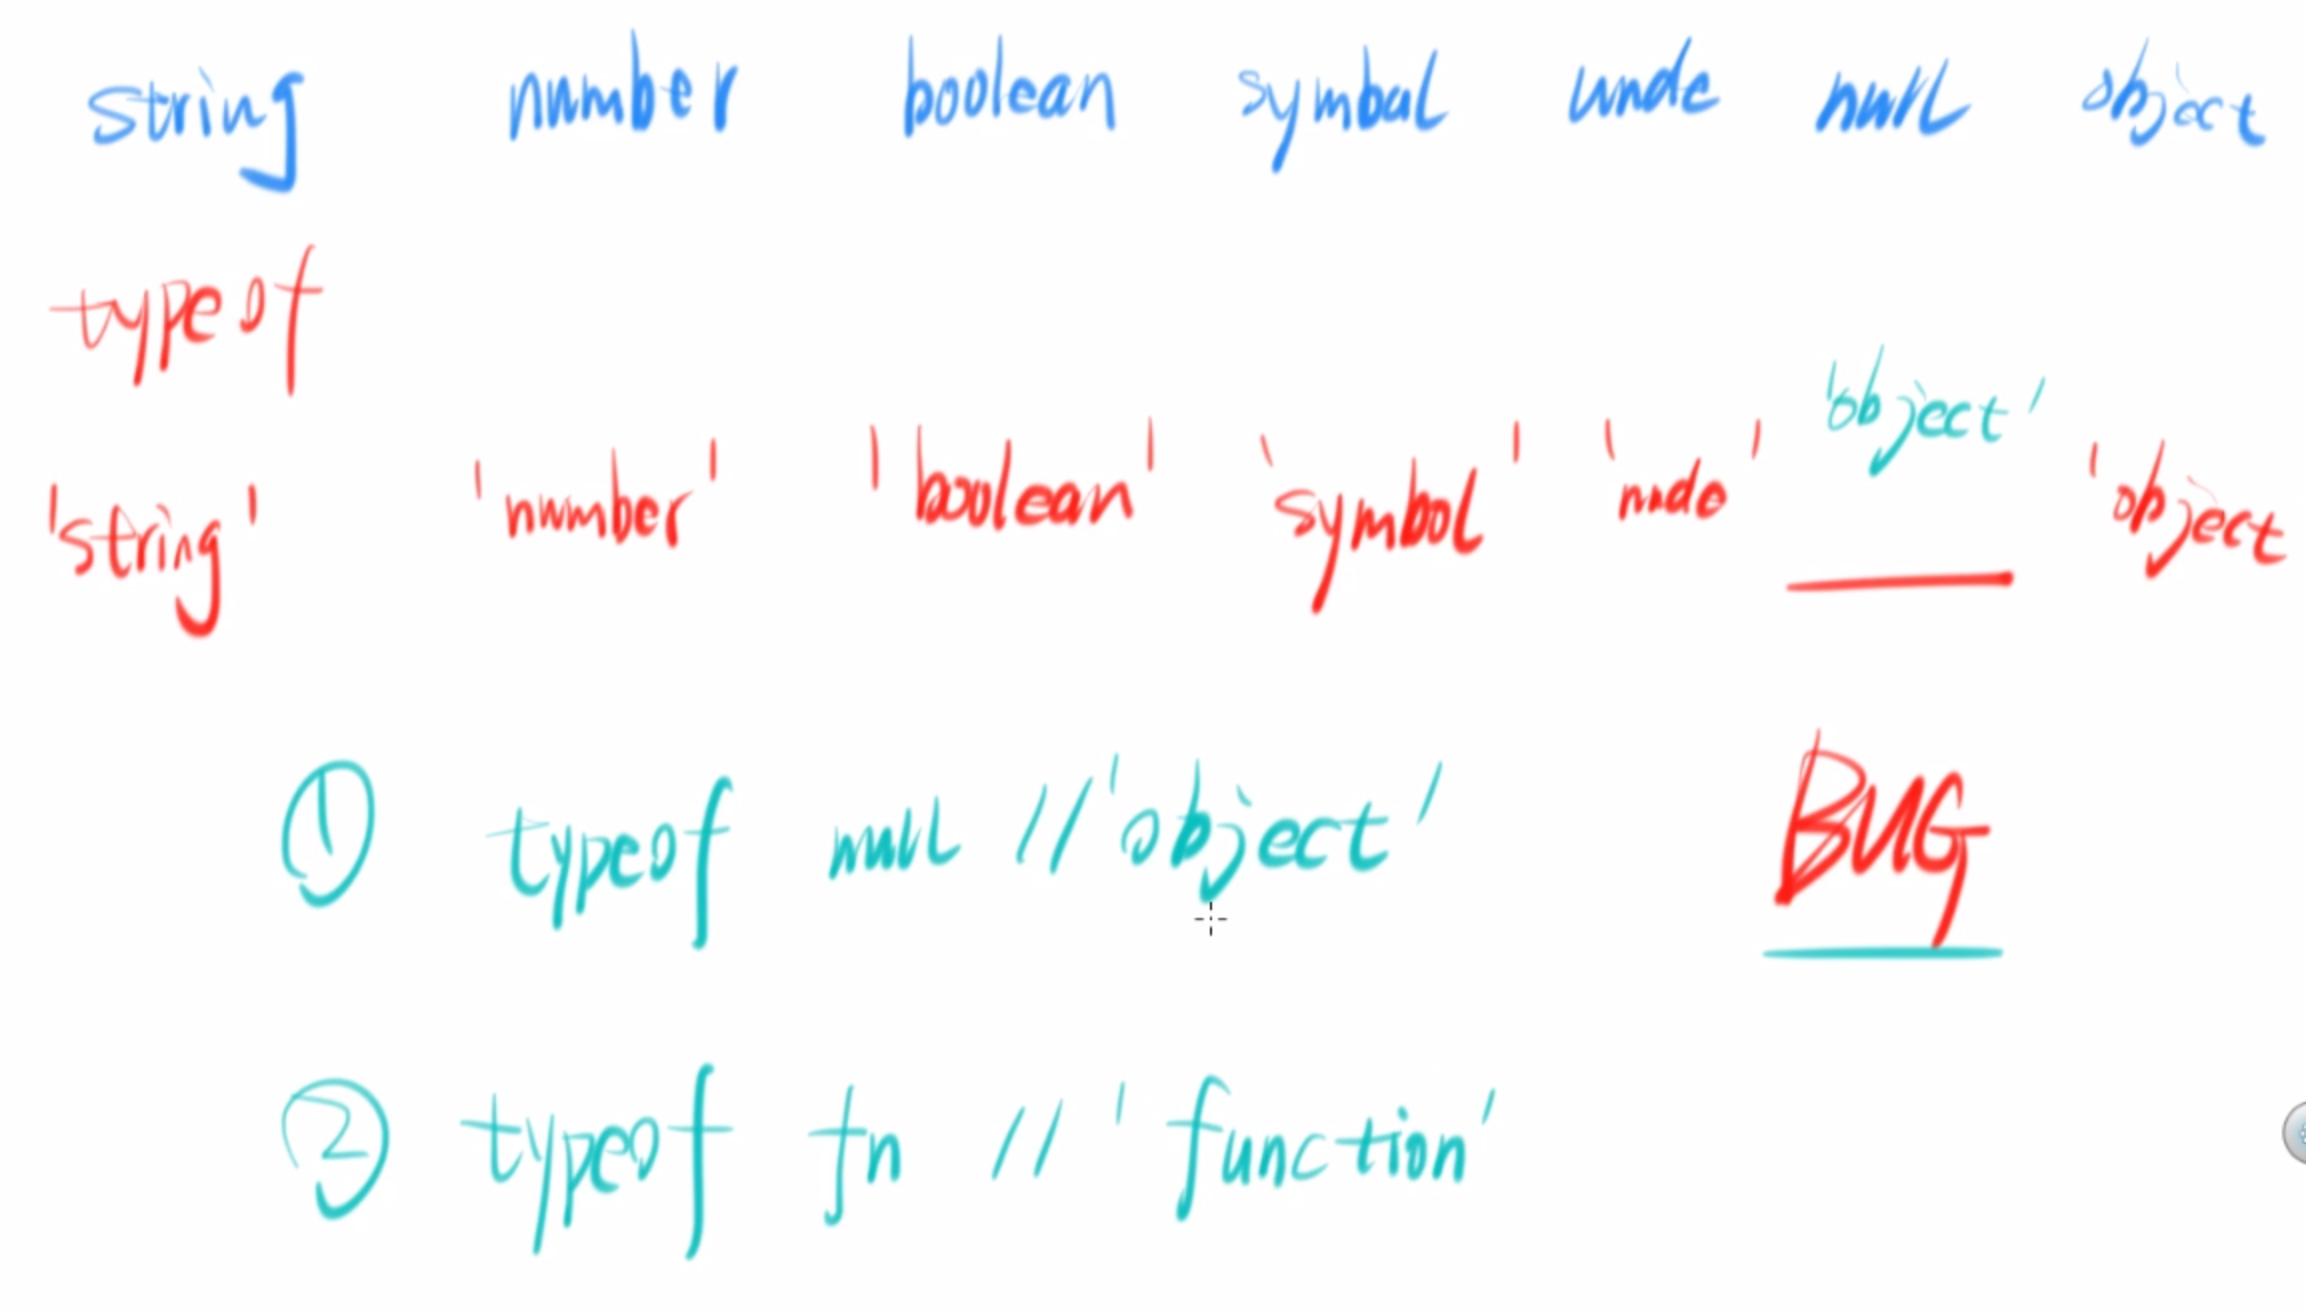 string number boolean symbal unde null object
typeof
'object'
'string' 'number' 'boolean' 'symbol' 'unde' 'object
① typeof null // 'object' BUG
② typeof fn // 'function'